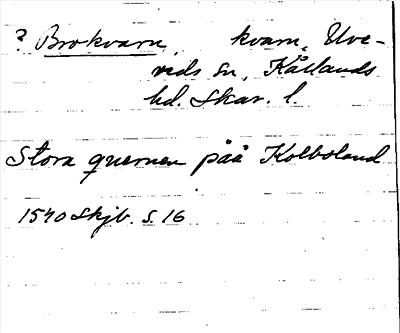 ? Brokvarn, kvarn, Uve-
reds sn, Kållands
hd. Skar. l.
Stora quernen påå Kolboland
1540 Skjb. s. 16